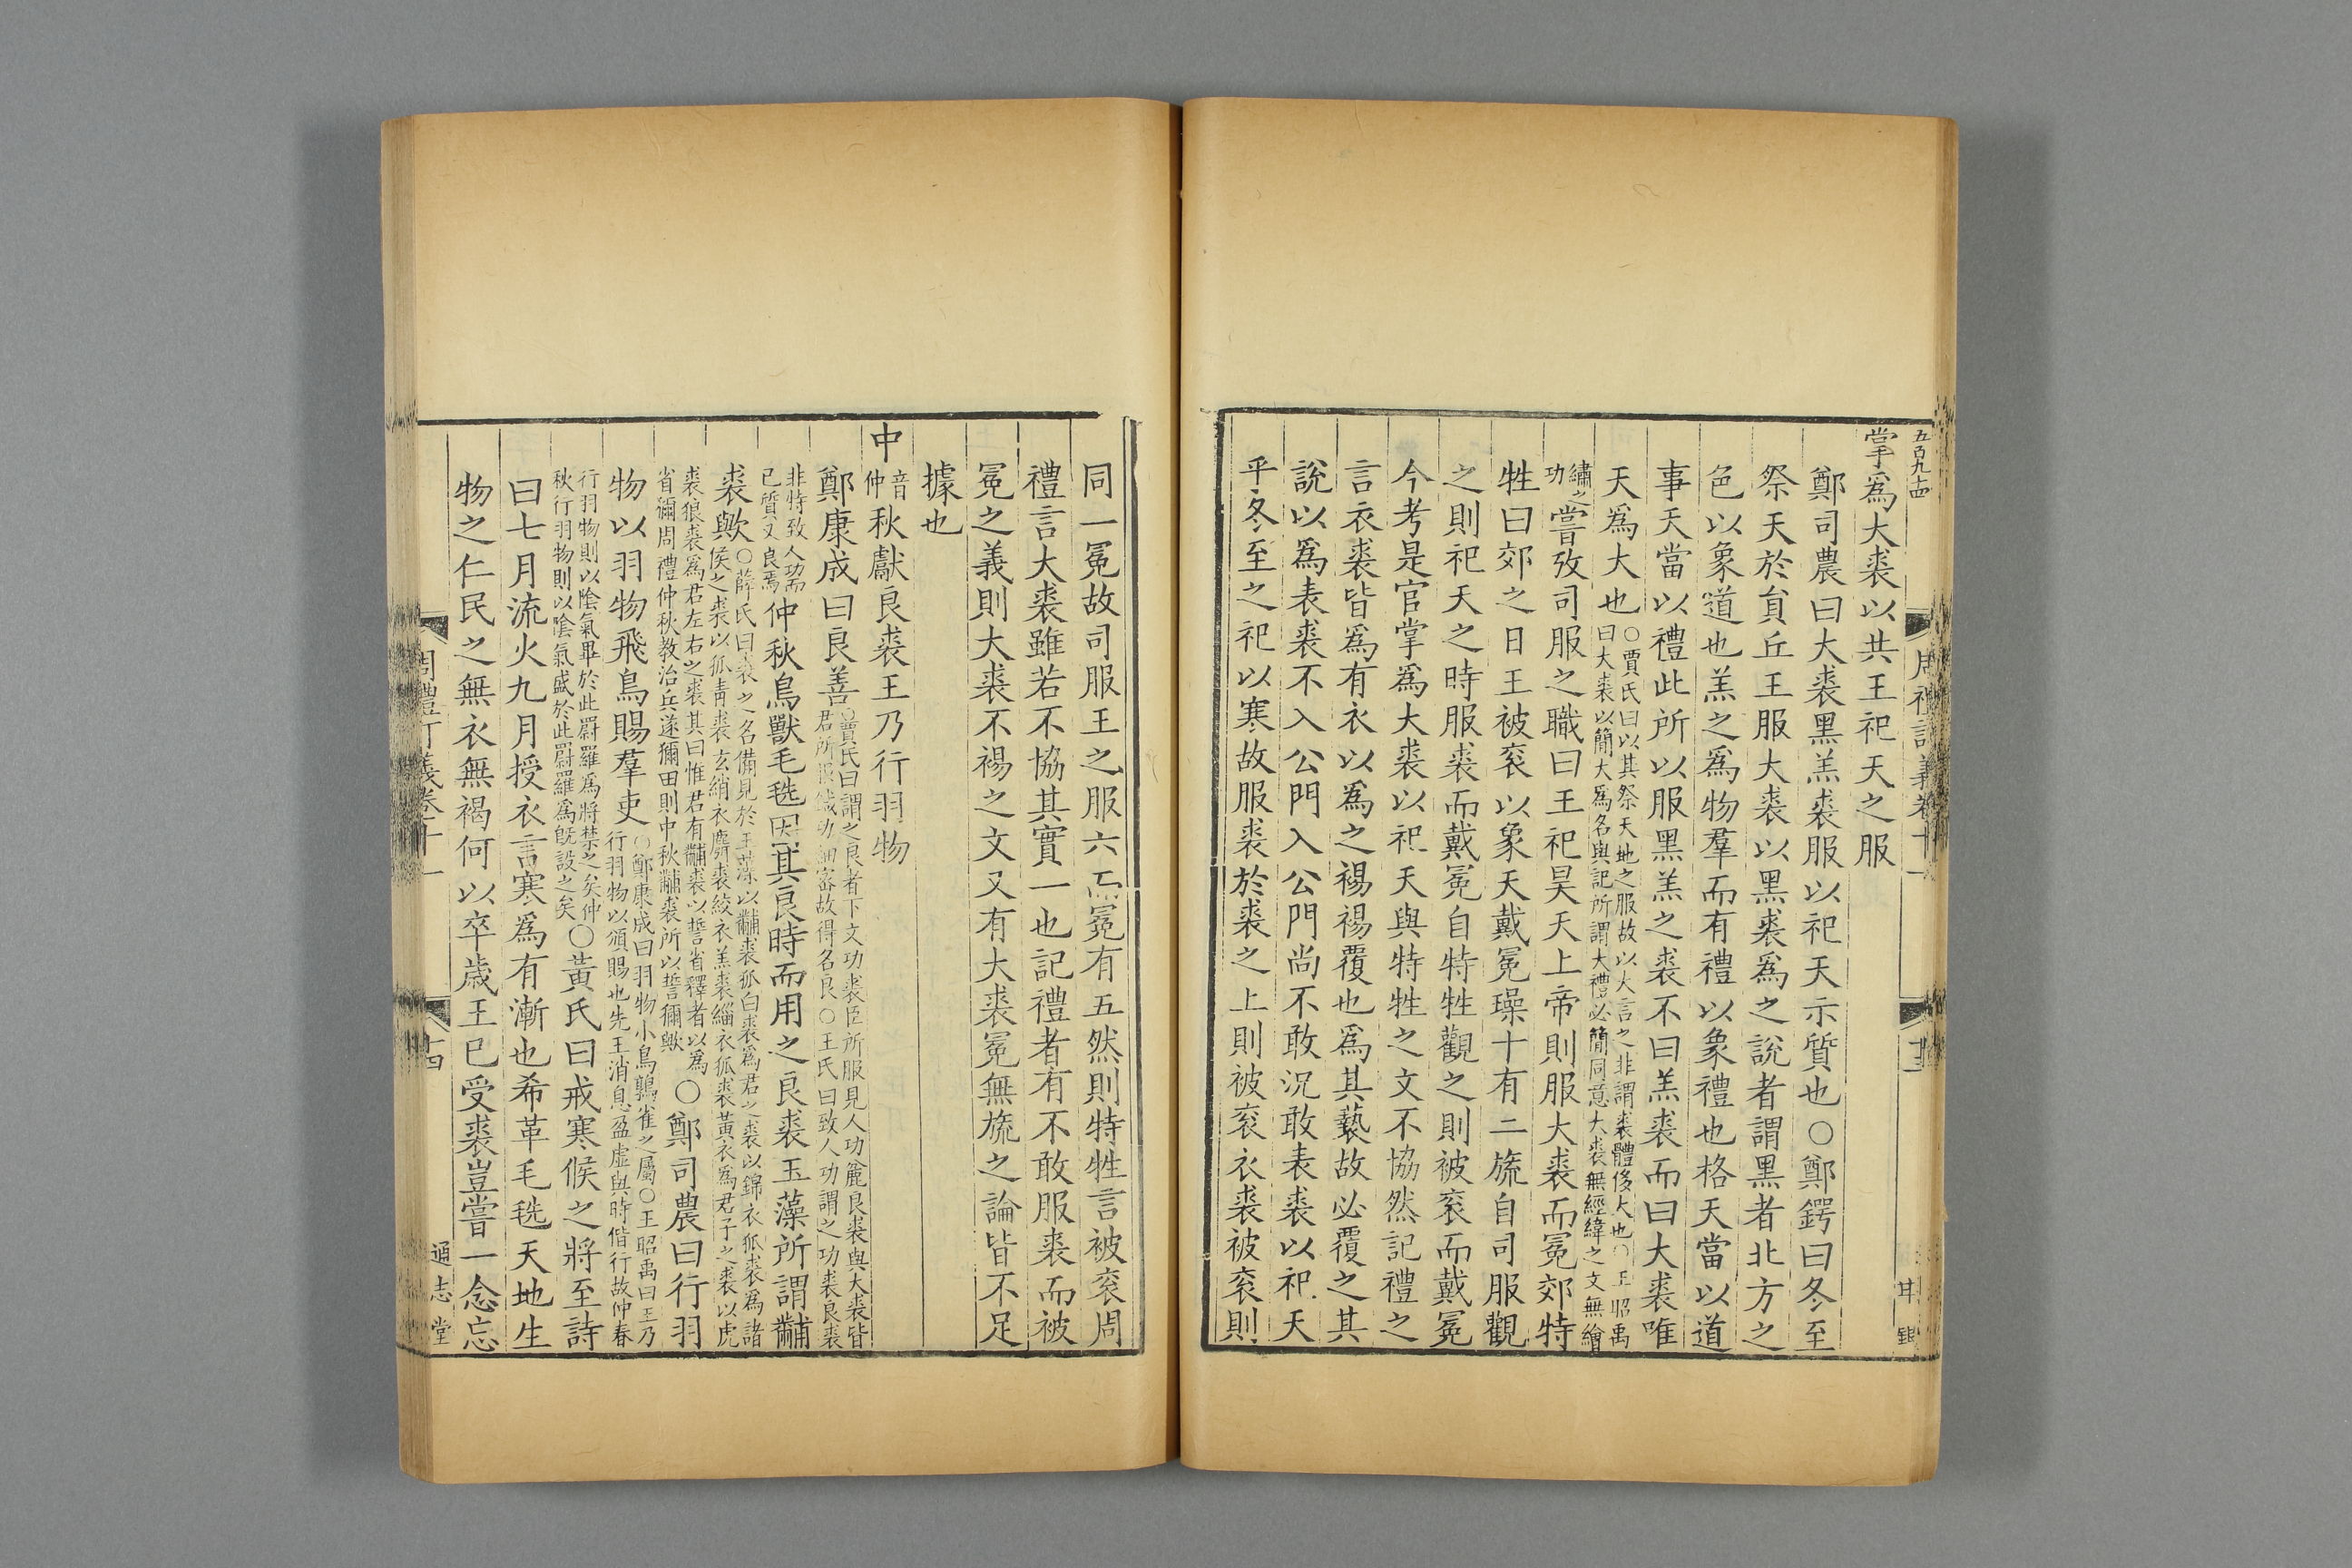 五百九十四
周禮訂義卷十一
掌爲大裘以共王祀天之服
鄭司農曰大裘黑羔裘服以祀天示質也○鄭鍔曰冬至
祭天於貟丘王服大裘以黑裘爲之說者謂黑者北方之
色以象道也羔之爲物羣而有禮以象禮也格天當以道
事天當以禮此所以服黑羔之裘不曰羔裘而曰大裘唯
天爲大也
○賈氏曰以其祭天地之服故以大言之非謂裘體侈大也○王昭禹
曰大裘以簡大爲名與記所謂大禮必簡同意大裘無經緯之文無繪
繡之
功
嘗攷司服之職曰王祀昊天上帝則服大裘而冕郊特
牲曰郊之日王被衮以象天戴冕璪十有二旒自司服觀
之則祀天之時服裘而戴冕自特牲觀之則被衮而戴冕
今考是官掌爲大裘以祀天與特牲之文不協然記禮之
言衣裘皆爲有衣以爲之裼裼覆也爲其褻故必覆之其
說以爲表裘不入公門入公門尚不敢況敢表裘以祀天
乎冬至之祀以寒故服裘於裘之上則被衮衣裘被衮則
同一冕故司服王之服六而冕有五然則特牲言被衮周
禮言大裘雖若不協其實一也記禮者有不敢服裘而被
冕之義則大裘不裼之文又有大裘冕無旒之論皆不足
據也
中
音
仲
秋獻良裘王乃行羽物
鄭康成曰良善
○賈氏曰謂之良者下文功裘臣所服見人功麄良裘與大裘皆
君所服鍼功細密故得名良○王氏曰致人功謂之功裘良裘
非特致人功而
已質又良焉
仲秋鳥獸毛毨因其良時而用之良裘玉藻所謂黼
裘歟
○薛氏曰裘之名備見於玉藻以黼裘狐白裘爲君之裘以錦衣狐裘爲諸
侯之裘以狐靑裘玄綃衣麛裘絞衣羔裘緇衣狐裘黃衣爲君子之裘以虎
裘狼裘爲君左右之裘其曰惟君有黼裘以誓省釋者以爲
省彌周禮仲秋教治兵遂獮田則中秋黼裘所以誓獮歟
○鄭司農曰行羽
物以羽物飛鳥賜羣吏
○鄭康成曰羽物小鳥鶉雀之屬○王昭禹曰王乃
行羽物以頒賜也先王消息盈虛與時偕行故仲春
行羽物則以陰氣畢於此罻羅爲將禁之矣仲
秋行羽物則以陰氣盛於此罻羅爲旣設之矣
○黃氏曰戒寒候之將至詩
曰七月流火九月授衣言寒爲有漸也希革毛毨天地生
物之仁民之無衣無褐何以卒歲王已受裘豈嘗一念忘
周禮訂義卷十一
十四
通志堂